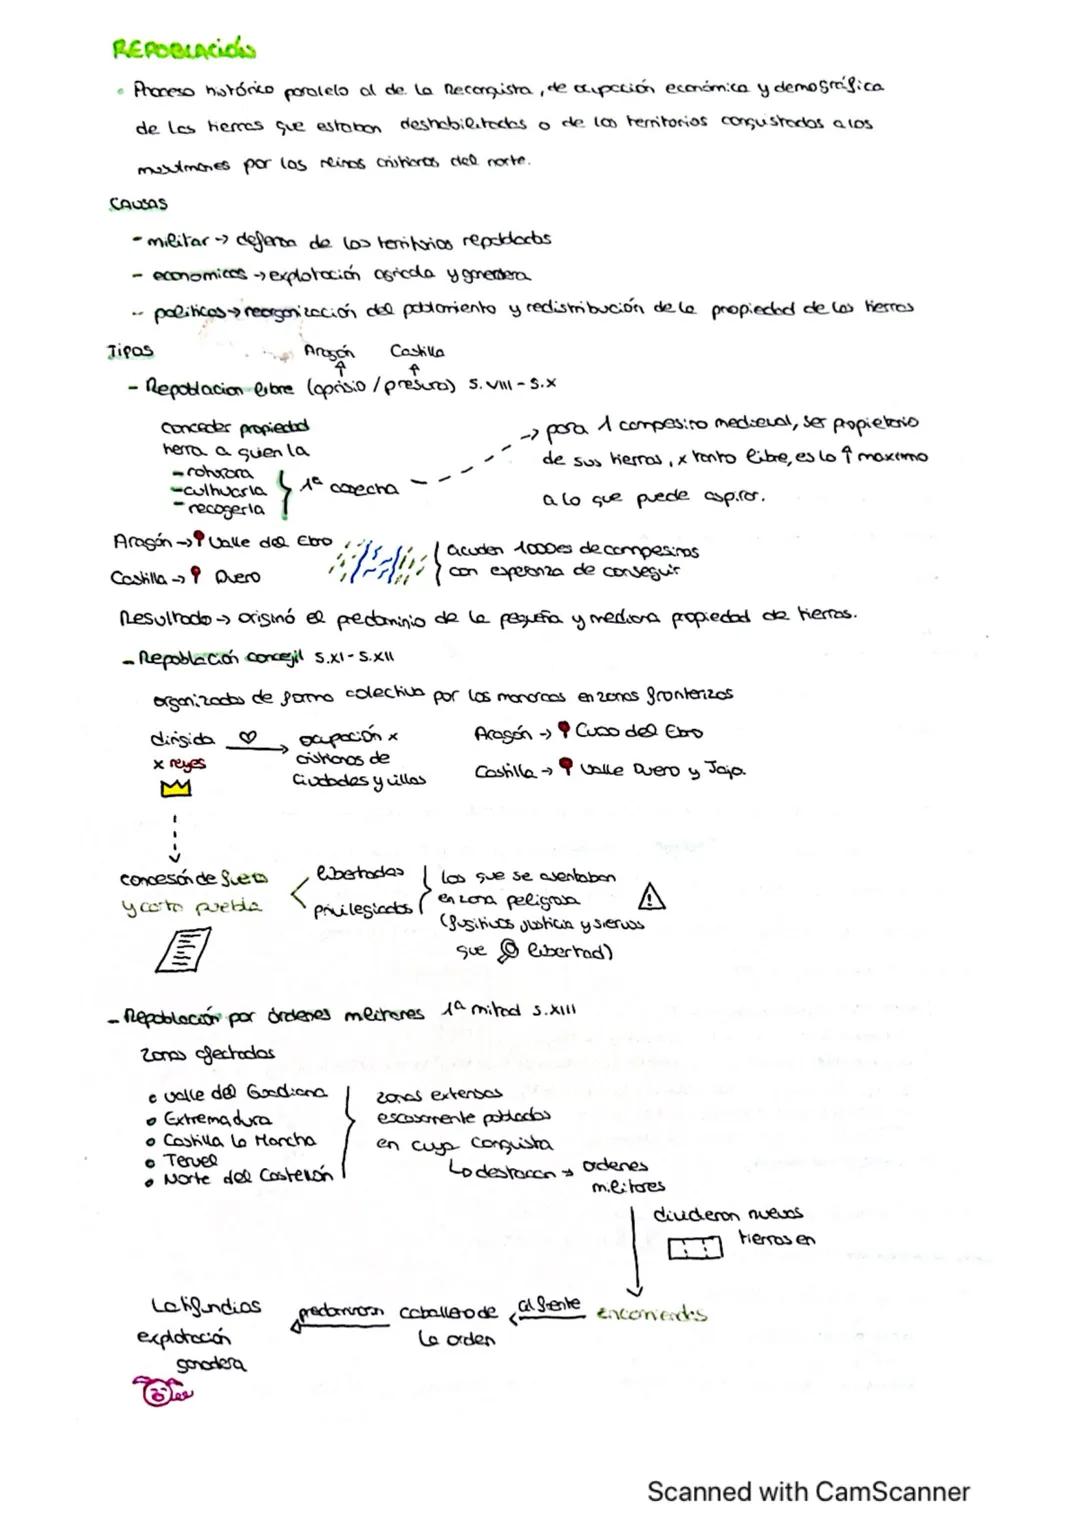 REPOBLACIÓN
• Proceso histórico paralelo al de la Reconquista, de ocupación económica y demográfica
de las tierras que estaban deshabilitadas o de los territorios conquistados a los
musulmanes por los reinos cristianos del norte.
CAUSAS
- militar → defensa de los territorios repoblados
- economicas → explotación agrícola y ganadera
- políticas → reorganización del poblamiento y redistribución de la propiedad de las tierras
Tipos
Aragón Castilla
↑ ↑
- Repoblacion libre (aprisio / presura) s. VIII - s.X
conceder propiedad
tierra a quien la
- roturara
- cultivarla
- recogerla
1ª cosecha
→ para 1 campesino medieval, ser propietario
de sus tierras, x tanto libre, es lo ↑ maximo
a lo que puede aspirar.
Aragón → Valle del Ebro
Castilla → Duero
acuden 1000es de campesinos
con esperanza de conseguir
Resultado → originó el predominio de la pequeña y mediana propiedad de tierras.
- Repoblación concejil s.XI - s.XII
organizadas de forma colectiva por los monarcas en zonas fronterizas
dirigida
x reyes
→ ocupación x
cristianos de
ciudades y villas
Aragón → Curso del Ebro
Castilla → Valle Duero y Tajo.
concesión de fueros
y carta puebla
libertades
privilegiados
los que se asentaban
en zona peligrosa
(fugitivos justicia y siervos
que libertad)
- Repoblación por órdenes militares 1ª mitad s.XIII
zonas afectadas
• valle del Guadiana
• Extremadura
• Castilla la Mancha
• Teruel
• Norte del Castellón
zonas extensas
escasamente pobladas
en cuya conquista
↳ destacan → ordenes
militares
dividieron nuevas
tierras en
Latifundios
explotación
ganadera
predominaron
caballero de
la orden
al frente
encomiendas
Scanned with CamScanner